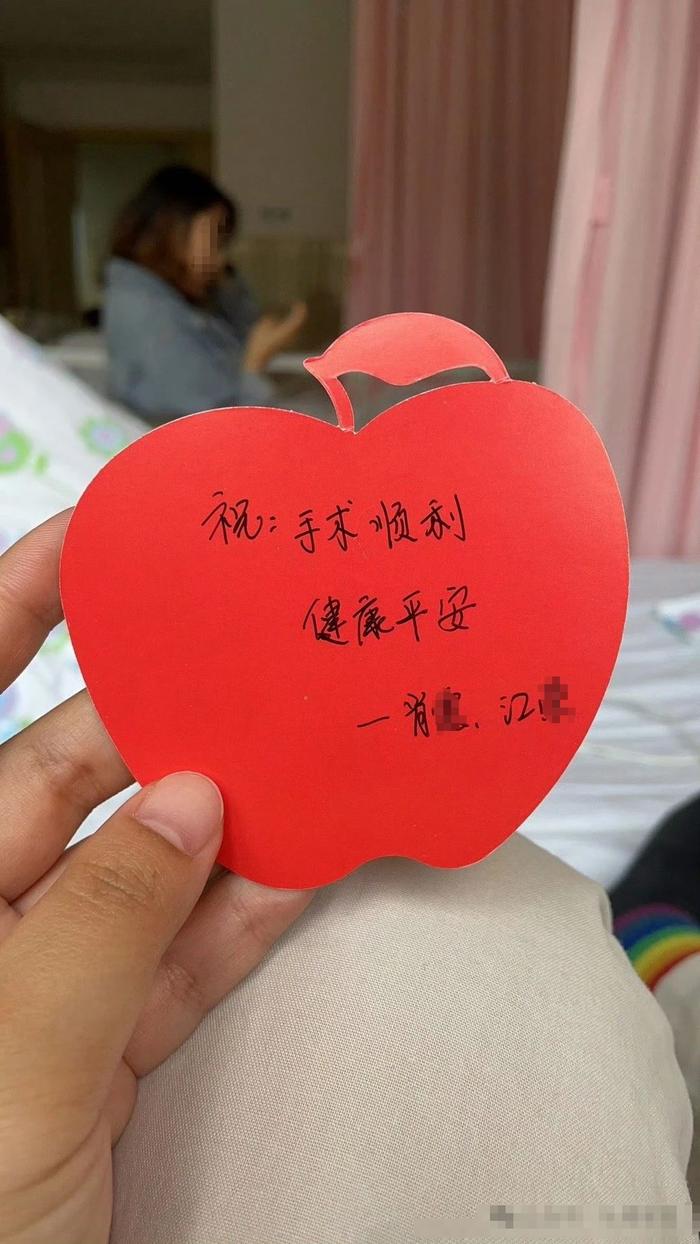 祝：手术顺利
健康平安
—肖 、江